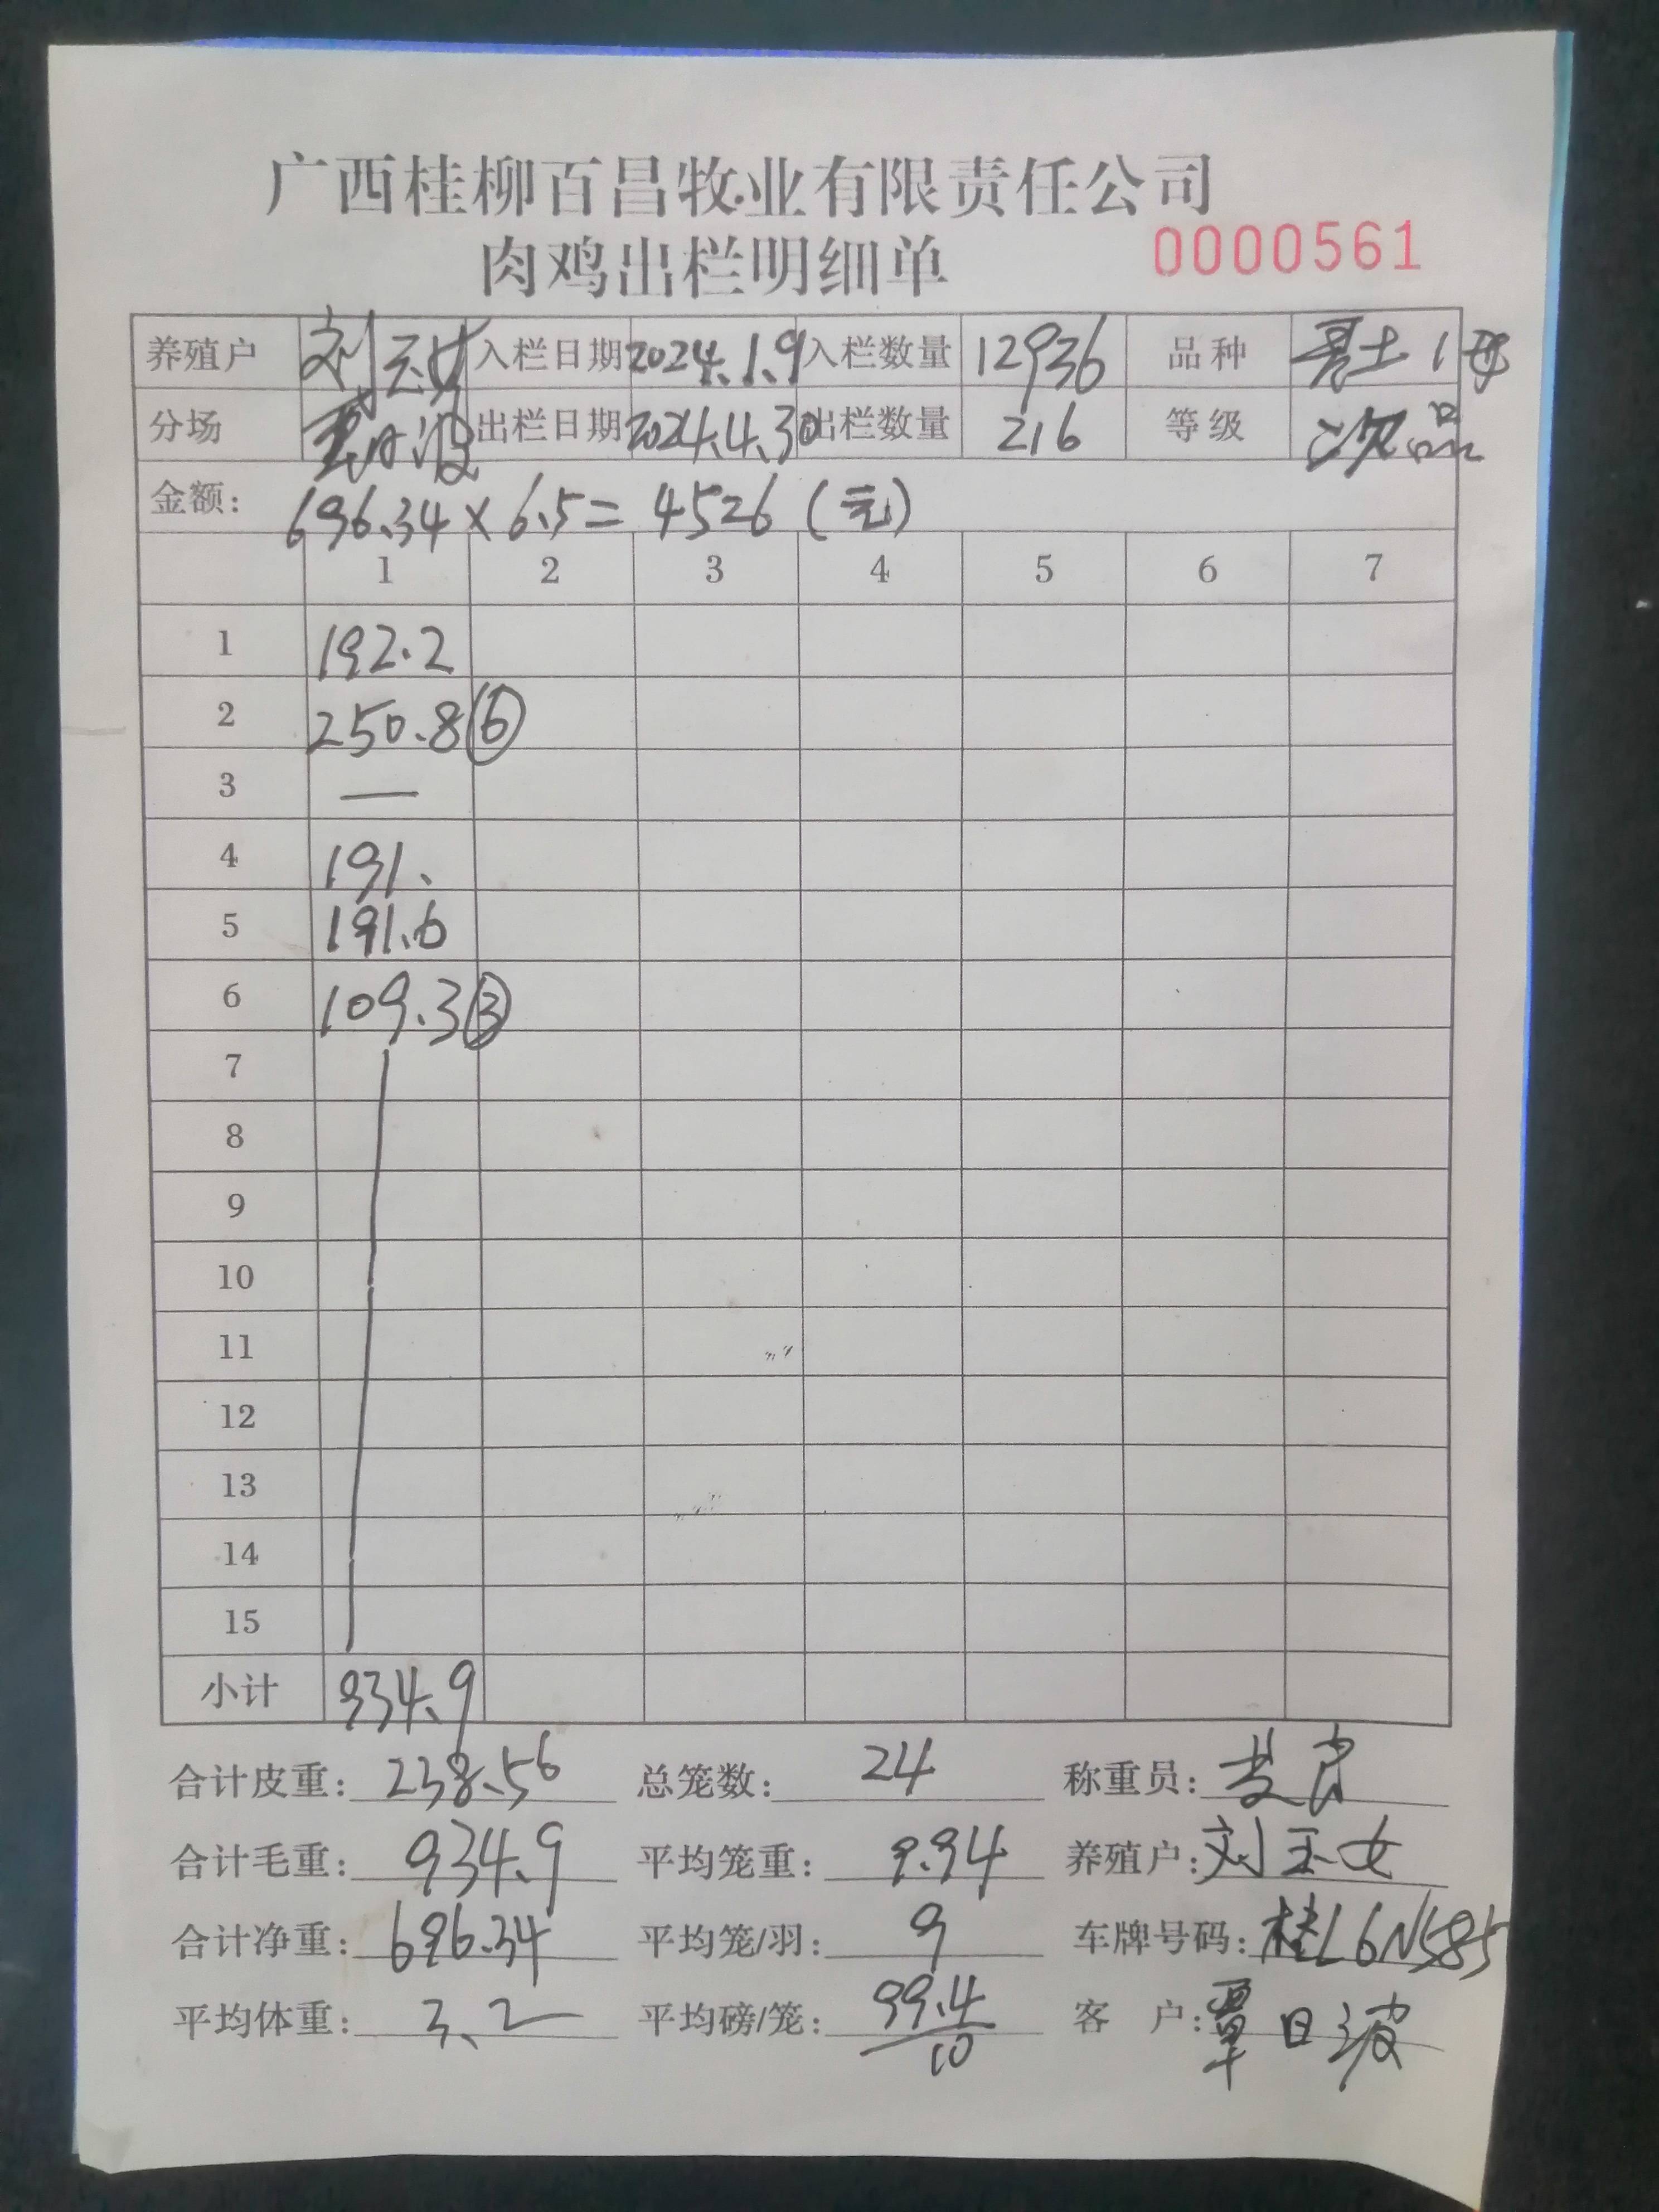 广西桂柳百昌牧业有限责任公司
肉鸡出栏明细单 0000561
养殖户 刘玉女 入栏日期 2024.1.9 入栏数量 12936 品种 土1母
分场 覃日波 出栏日期 2024.4.30 出栏数量 216 等级 次品
金额: 696.34×6.5=4526(元)
1 2 3 4 5 6 7
1 192.2
2 250.8 ⑥
3 —
4 191.
5 191.6
6 109.3 ③
7
8
9
10
11
12
13
14
15
小计 934.9
合计皮重: 238.56 总笼数: 24 称重员:
合计毛重: 934.9 平均笼重: 9.94 养殖户: 刘玉女
合计净重: 696.34 平均笼/羽: 9 车牌号码: 桂L6N585
平均体重: 3.2 平均磅/笼: 99.4/10 客 户: 覃日波